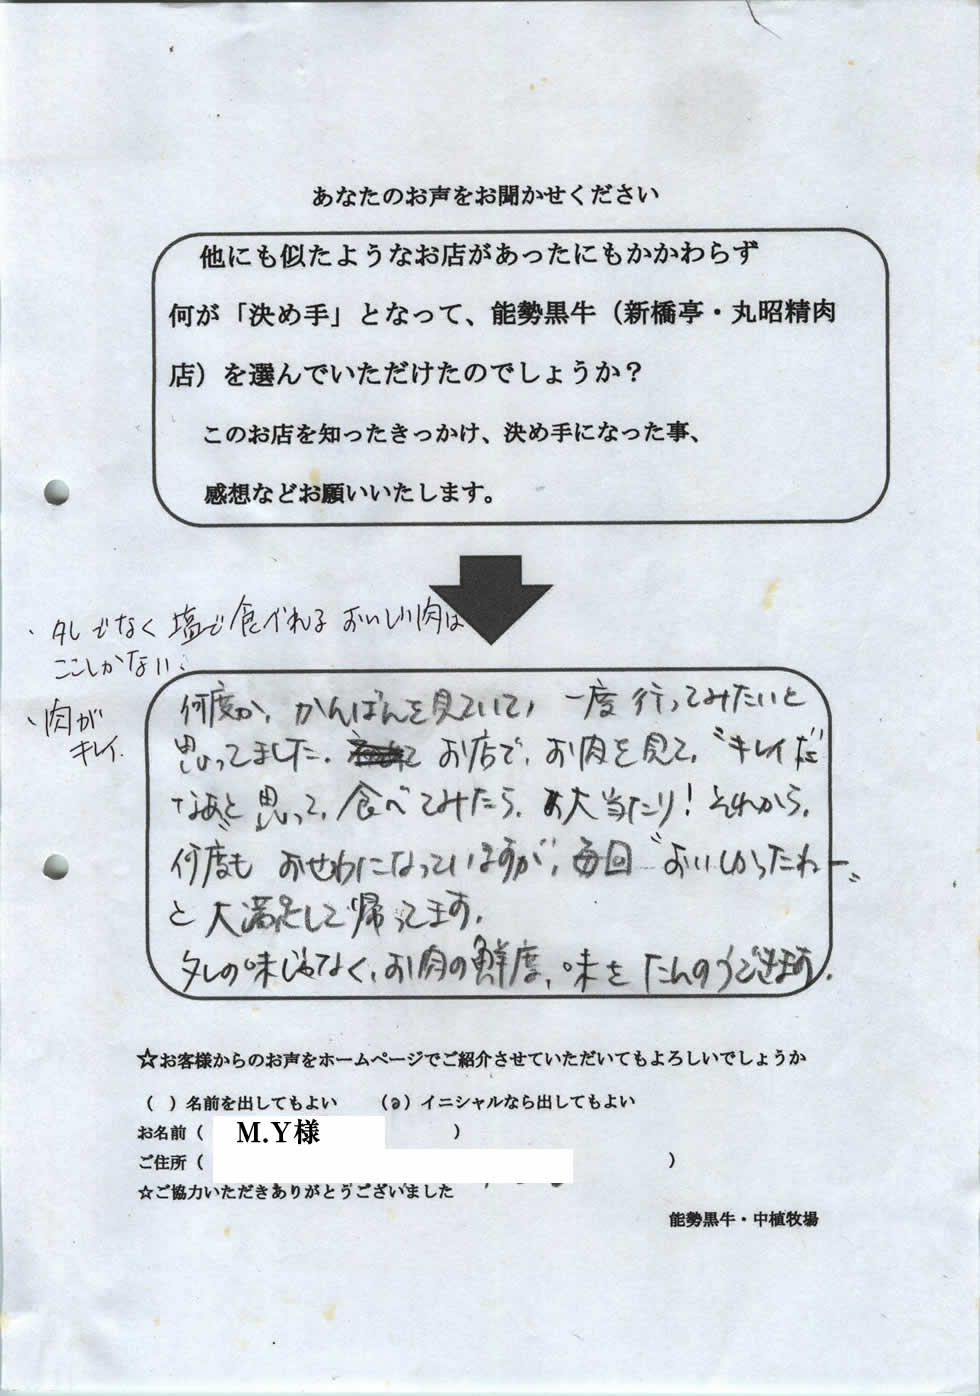 あなたのお声をお聞かせください
他にも似たようなお店があったにもかかわらず
何が「決め手」となって、能勢黒牛（新橋亭・丸昭精肉
店）を選んでいただけたのでしょうか？
このお店を知ったきっかけ、決め手になった事、
感想などお願いいたします。
・タレでなく塩で食べれるおいしい肉は
ここしかない。
・肉が
キレイ.
何度か、かんばんを見ていて、一度行ってみたいと
思ってました. お店で、お肉を見て、“キレイだ
なあ”と思って、食べてみたら、大当たり！それから、
何度もおせわになっていますが、毎回“おいしかったねー”
と大満足して帰ってます.
タレの味じゃなく、お肉の鮮度、味をたんのうできます.
☆お客様からのお声をホームページでご紹介させていただいてもよろしいでしょうか
（ ）名前を出してもよい （○）イニシャルなら出してもよい
お名前（ M.Y様 ）
ご住所（ ）
☆ご協力いただきありがとうございました
能勢黒牛・中植牧場